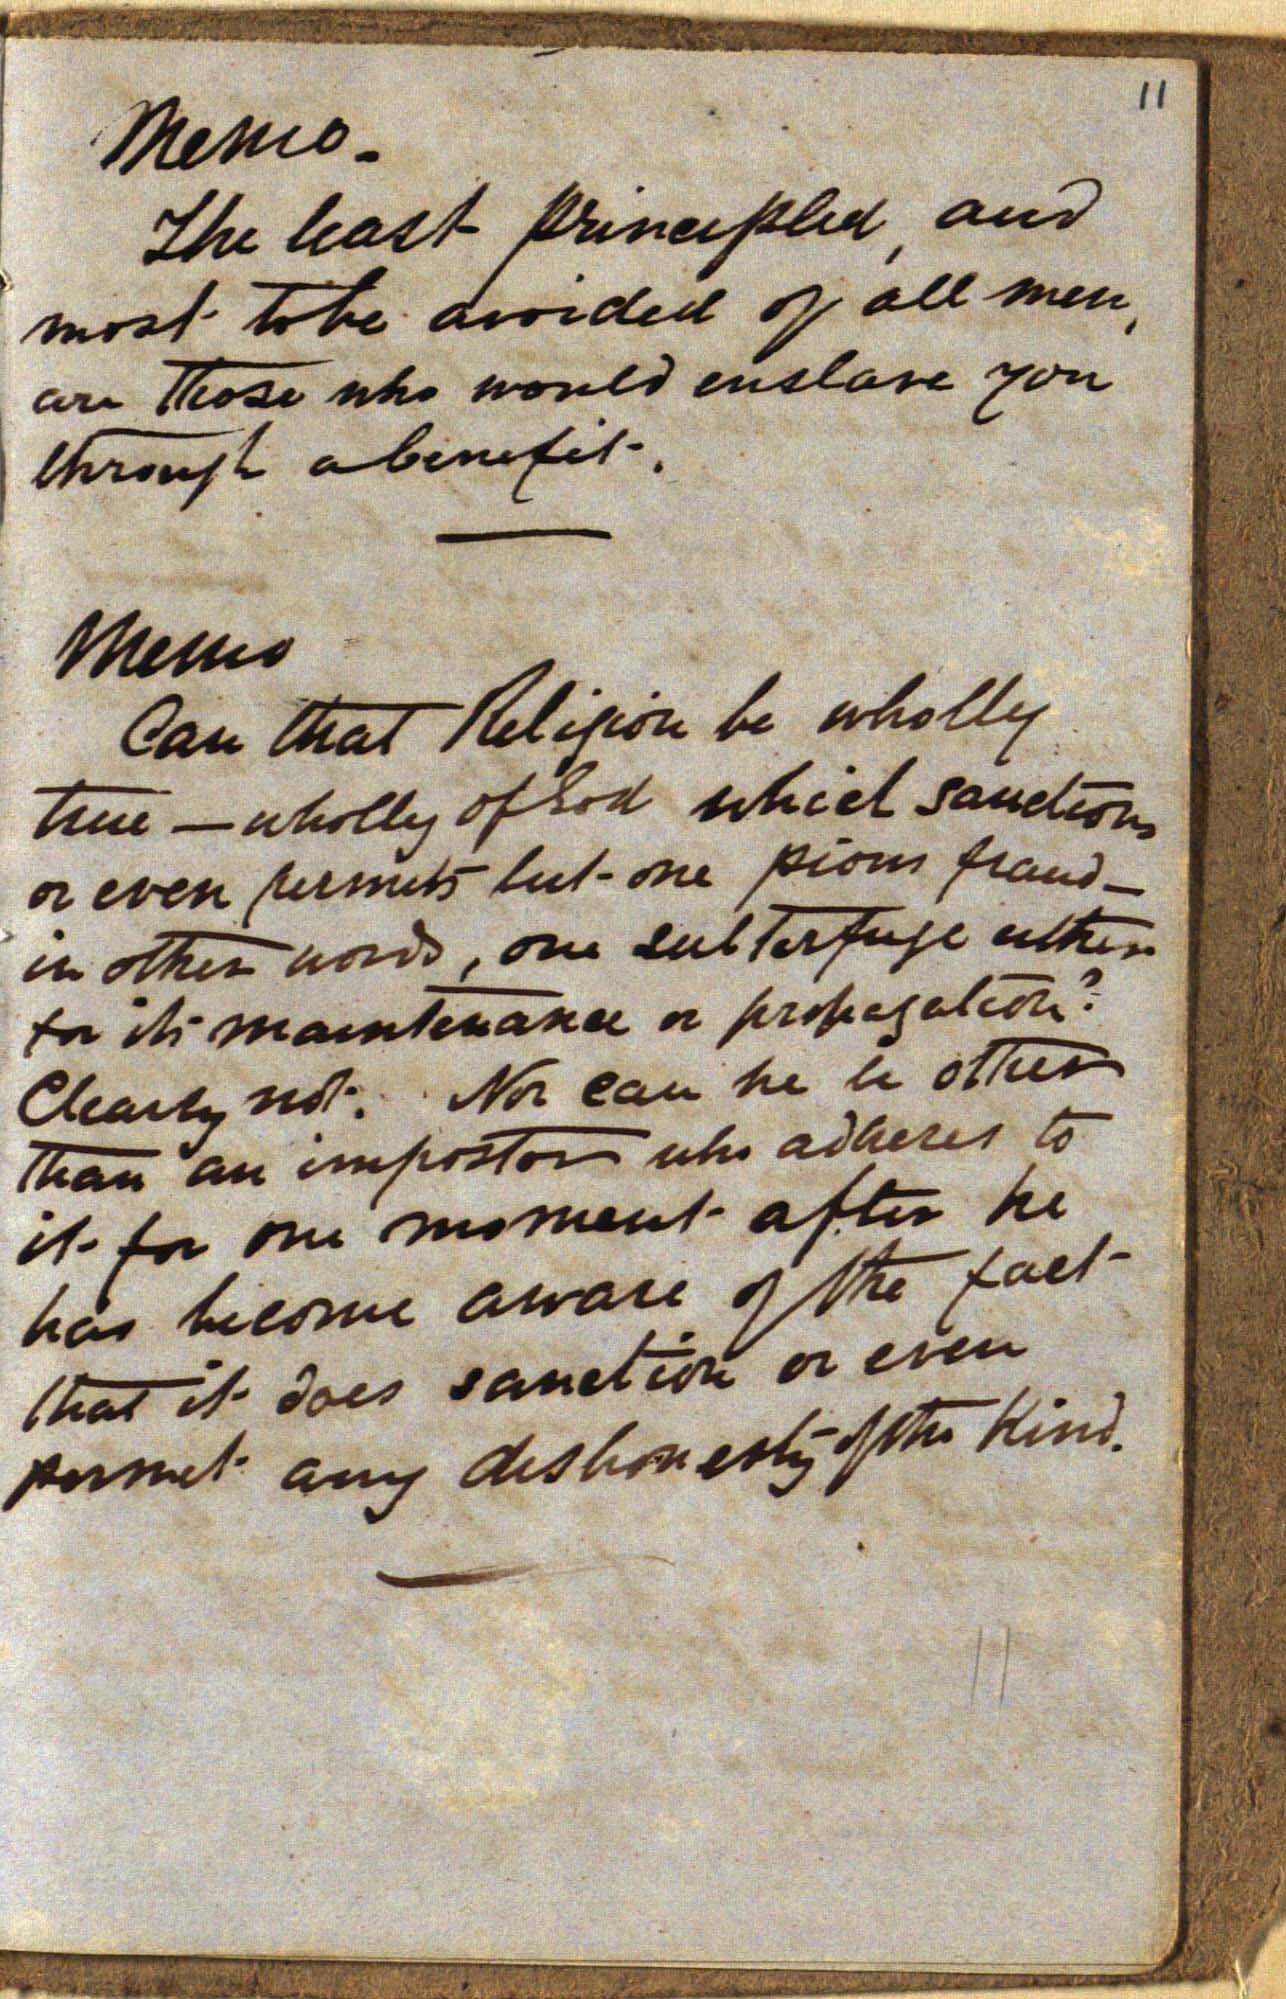 11
Memo.
The least principled, and
most to be avoided of all men,
are those who would enslave you
through a benefit.
Memo
Can that Religion be wholly
true — wholly of God which sanctions
or even permits but one pious fraud —
in other words, one subterfuge either
for its maintenance or propagation?
Clearly not. Nor can he be other
than an impostor who adheres to
it for one moment after he
has become aware of the fact
that it does sanction or even
permit any dishonesty of the Kind.
11